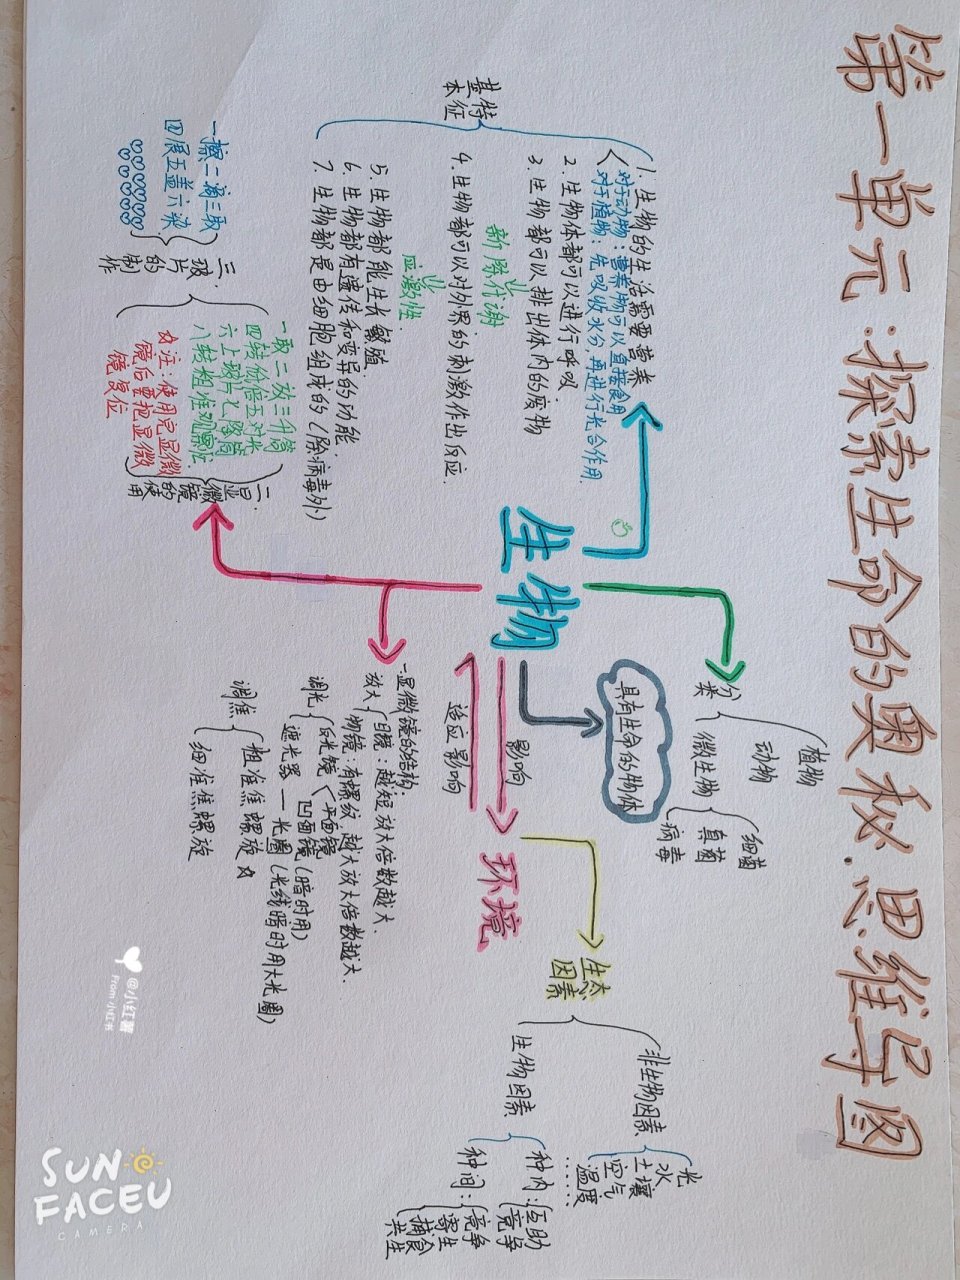 第一单元:探索生命的奥秘.思维导图
生物
基本特征
1. 生物的生活需要营养
对于动物:营养物可以直接食用
对于植物:先吸收水分,再进行光合作用.
2. 生物体都可以进行呼吸.
3. 生物都可以排出体内的废物
新陈代谢
4. 生物都可以对外界的刺激作出反应.
应激性.
5. 生物都能生长繁殖
6. 生物都有遗传和变异的功能.
7. 生物都是由细胞组成的(除病毒外)
分类
植物
动物
微生物
细菌
真菌
病毒
具有生命的物体
影响
适应影响
环境
生态因素
非生物因素
光
水
土壤
空气
温度
……
生物因素
种内:
互助
竞争
种间:
竞争
寄生
捕食
共生
一.显微镜的结构:
放大
目镜:越短放大倍数越大.
物镜:有螺纹.越大放大倍数越大.
调光
反光镜
平面镜
凹面镜(暗时用)
遮光器—光圈(光线暗时用大光圈)
调焦
粗准焦螺旋
细准焦螺旋
二.显微镜的使用
一取二放三升筒
四转低倍五对光
六上玻片七降筒
八转粗准观察忙.
注:使用完显微镜后要把显微镜复位
三.玻片的制作
一擦二滴三取
四展五盖六染
@小红薯
From 小红书
SUN
FACEU
CAMERA